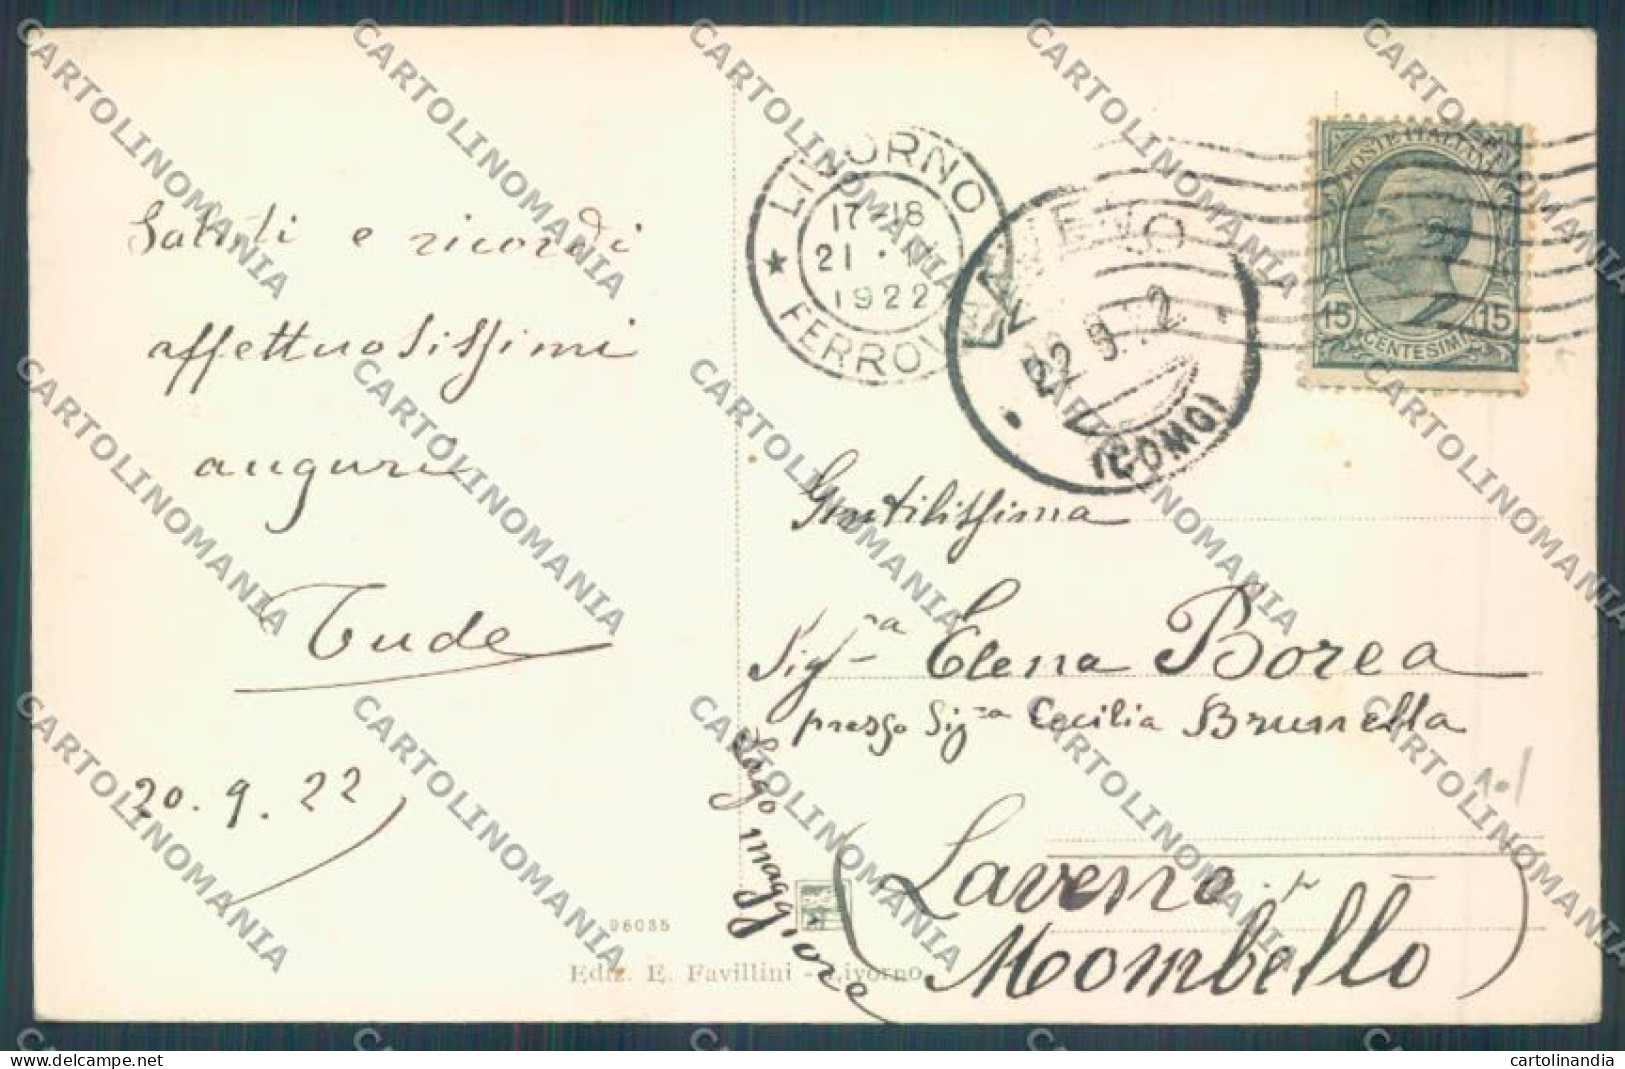 Saluti e ricordi
affettuosissimi
auguri
Tude
20.9.22
96035
Ediz. E. Favillini - Livorno
LIVORNO
17-18
21 .
1922
★ FERROV
LAVENO
22.9.22
(COMO)
POSTE ITALIANE
15 15
CENTESIMI
Gentilissima
Sig.ra Elena Borea
presso Sig.ra Cecilia Brunella
Laveno
Mombello
Lago maggiore
CARTOLINOMANIA
cartolinandia